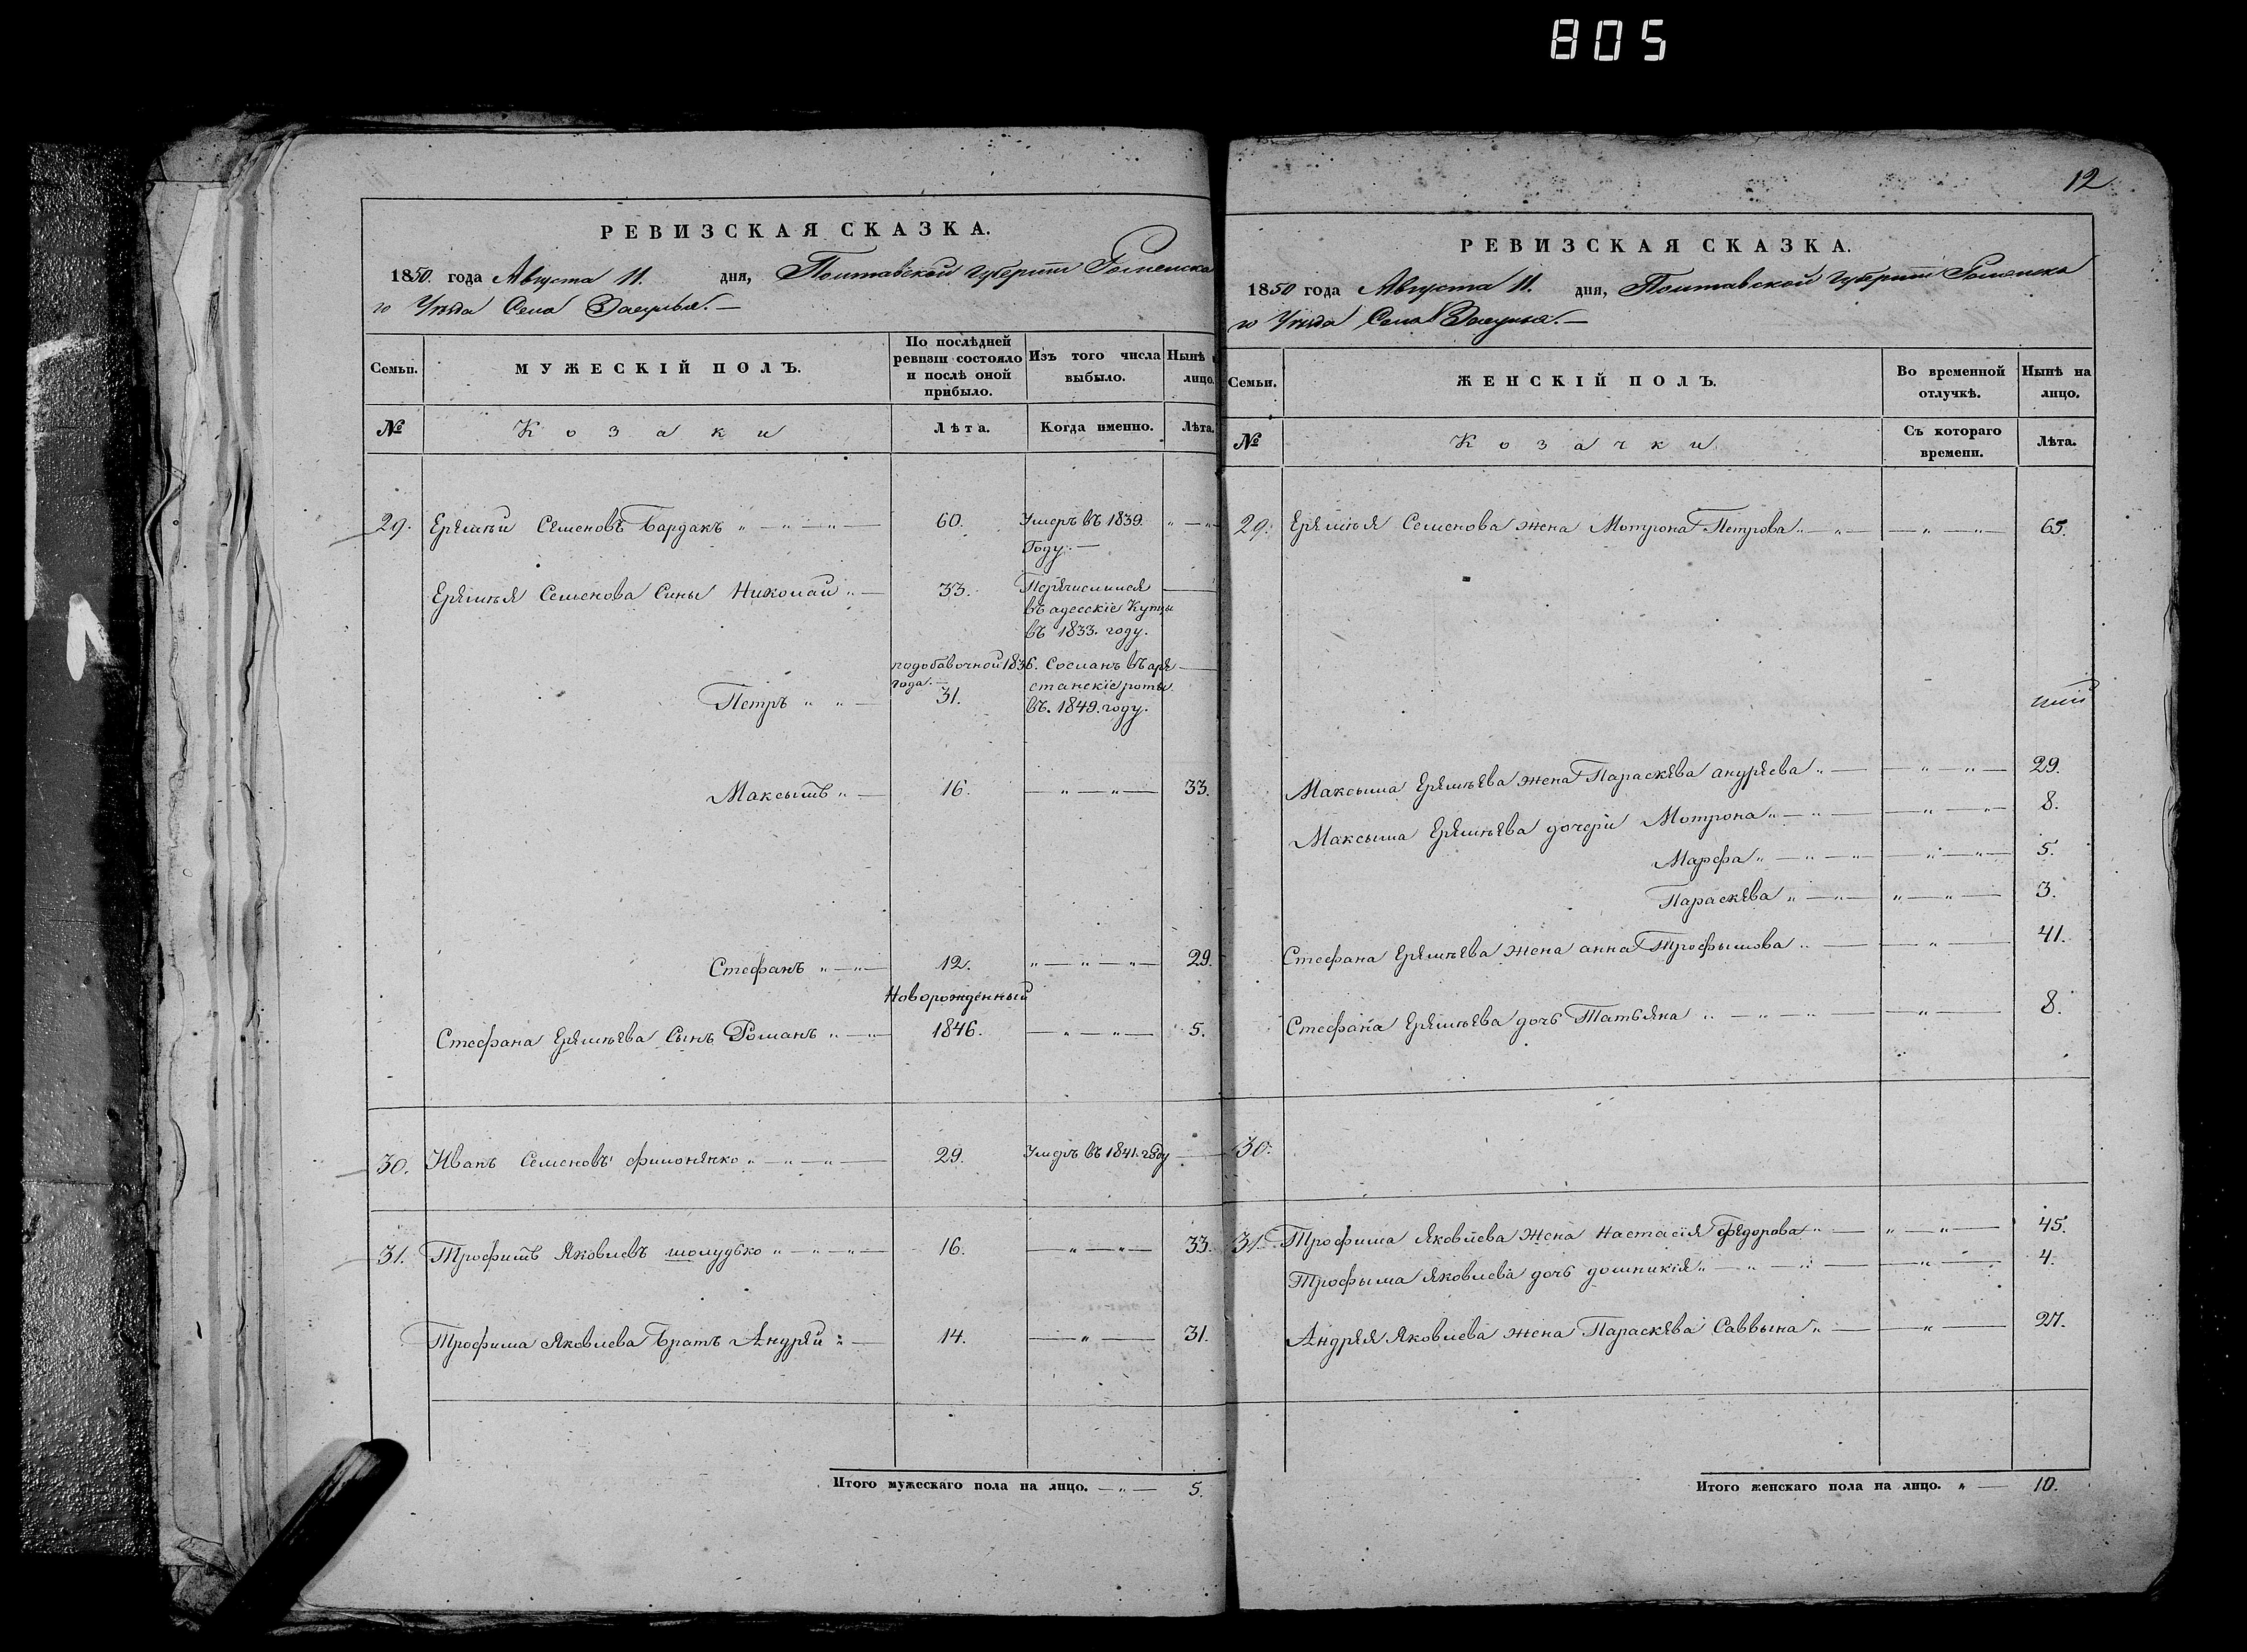 805
РЕВИЗСКАЯ СКАЗКА.
1850. года Августа 11. дня, Полтавской губернии Роменска
го Уезда Села Засулья. —
Семьи. МУЖЕСКІЙ ПОЛЪ. По послѣдней ревизіи состояло и послѣ оной прибыло. Изъ того числа выбыло. Нынѣ лицо.
№ Козаки Лѣта. Когда именно. Лѣта.
29. Еремѣй Семеновъ Бардакъ " — " — " — 60. Умеръ въ 1839. " — "
Году. —
Еремѣя Семенова Сины Николай " — 33. Перечислился —
въ адесскіе Купцы
въ 1833. году.
подобавочной 1836. Сосланъ въ аре —
года. — станскіе роты
Петръ " " — 31. въ. 1849. году.
Максымъ " — 16. — " — " — 33.
Стефанъ " — " — 12. " — " — " — 29.
Новорожденный
Стефана Еремѣева Сынъ Романъ " — " 1846. — " — " — 5.
30. Иванъ Семеновъ филоненко " — " — " — 29. Умеръ въ 1841. году —
31. Трофимъ Яковлевъ шолудько " — " — " — 16. — " — " — 33.
Трофима Яковлева Братъ Андрей " — 14. — " — 31.
Итого мужескаго пола на лицо. — " — 5.
12
РЕВИЗСКАЯ СКАЗКА.
1850 года Августа 11. дня, Полтавской губерніи Роменска
го Уезда Села Засулья. —
Семьи. ЖЕНСКІЙ ПОЛЪ. Во временной отлучкѣ. Нынѣ на лицо.
№ Козачки Съ котораго времени. Лѣта.
29. Еремѣя Семенова жена Мотрона Петрова " — " — — " — " — 65.
Максыма Еремѣева жена Параскева андреева " — — " — " — 29.
Максыма Еремѣева дочери Мотрона " — " — — " — " 8.
Марфа " — " — " — " — " — 5.
Параскева " — " — " — " — 3.
Стефана Еремѣева жена анна Трофымова " — — " — 41.
Стефана Еремѣева дочь Татьяна " — " — " — — " — 8.
30.
31. Трофима Яковлева жена настасія федорова " — " — " — 45.
Трофыма Яковлева дочь домникія " — " — " — — " — 4.
Андрея Яковлева жена Параскева Саввына " — — " — 27.
Итого женскаго пола на лицо. " — 10.